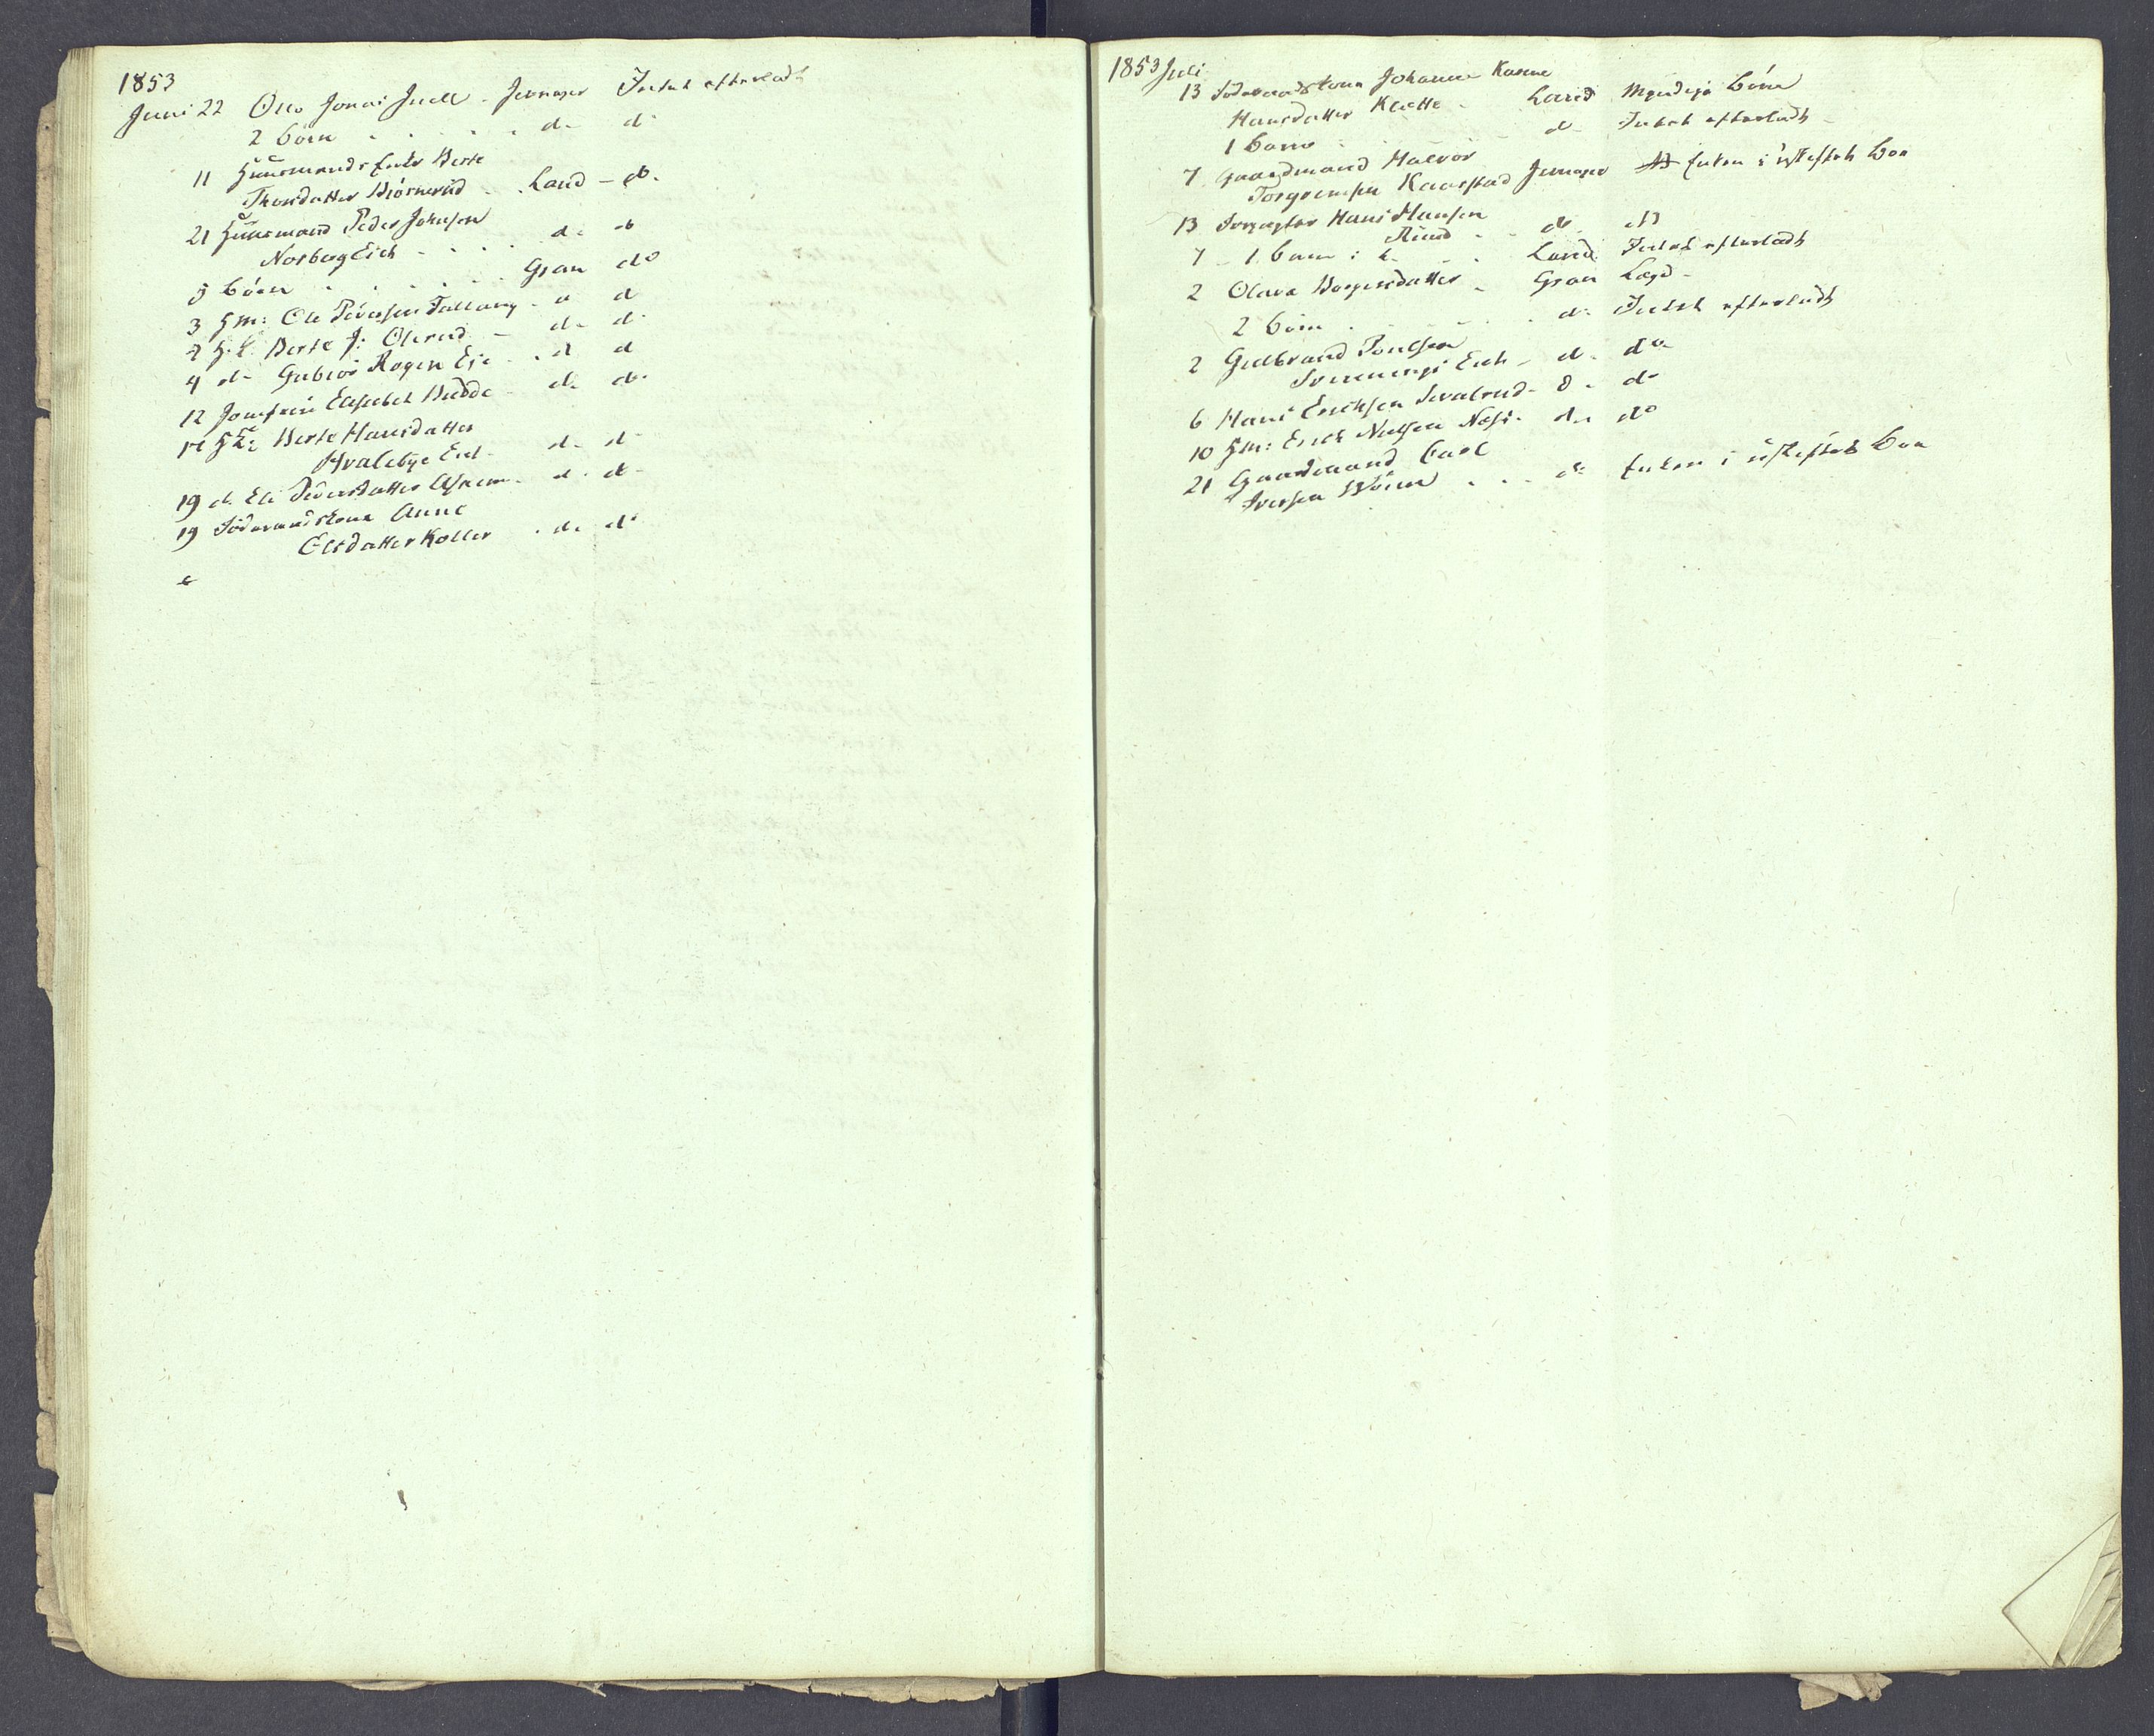 1853
Juni 22 Otto Jonas Juell - Jevnager Intet efterladt
2 børn . . . . . d- d-
11 Huusmands Enke Berte
Thorsdatter Biørnerud . Land - d-
21 Huusmand Peder Johnsen
Norberg Eich . . . . d- d-
5 børn . . . . . Gran do
3 Hm: Ole Iversen Tallang - d d
4 d- Gubiør Rognn Eje . d d
12 Jomfrue Elisabet Budde - d- d-
Berte Hansdatter
Hvalebye Eie - d- d-
19 d. Eli Pedersdatter - d- d-
19 Føderaadskone Anne
Elisdatter Koller . d- d-
1853 Juli
13 Føderaadskone Johanne Karine
Hansdatter Klette - Land Myndige børn
1 barn . . - d- Intet efterladt -
7 Gaardmand Halvor
Torgersen Kaarstad Jevnager Enken i uskiftet boe
13 Hans Hansen
Ruud - - d- d
7 - 1 barn . . Land Intet efterladt
2 Olava Borgersdatter - Gran Lægd -
2 børn . . . . d- Intet efterladt
2 Gulbrand Poulsen
Eich - d- do
6 Hans Erichsen - d- d-
10 Hm: Erich Nielsen Næss - d- do
21 Gaardmand Carl
Iversen . . . d- Enken i uskiftet boe